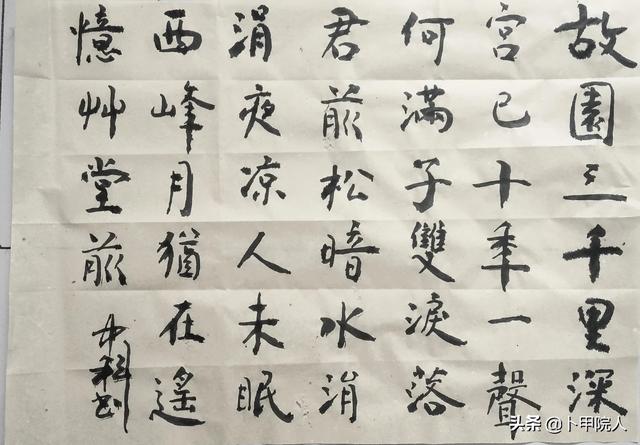 故園三千里深
宮已十年一聲
何滿子雙淚落
君前松暗水涓
涓夜凉人未眠
西峰月猶在遥
憶艸堂前
头条 @卜甲院人